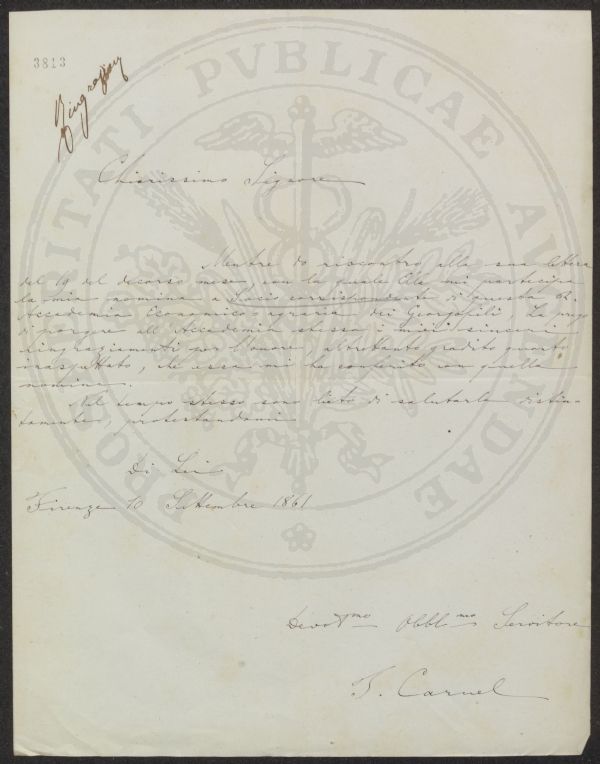 3813
Chiarissimo Signore
Mentre do riscontro alla sua lettera
del 19 del decorso mese, con la quale Ella mi partecipa
la mia nomina a Socio corrispondente di questa R.
Accademia Economico-agraria dei Georgofili La prego
di porgere all'Accademia stessa i miei sinceri
ringraziamenti per l'onore, altrettanto gradito quanto
inaspettato, che essa mi ha conferito con quella
nomina.
Nel tempo stesso sono lieto di salutarla distin-
tamente, protestandomi
Di Lei
Firenze 10 Settembre 1861
Devotmo Obblmo Servitore
T. Caruel
PROSPERITATI PVBLICAE AVGENDAE